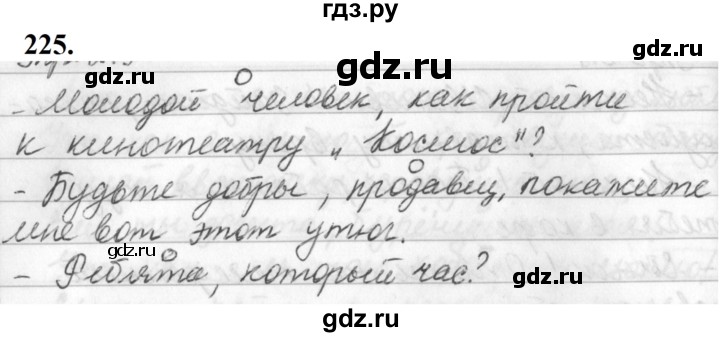 гдз.ру
225.
gdz.ru
- Молодой человек, как пройти
к кинотеатру „Космос"?
- Будьте добры, продавец, покажите
мне вот этот утюг.
gdz.ru
- Ребята, который час?
gdz.ru
gdz.ru